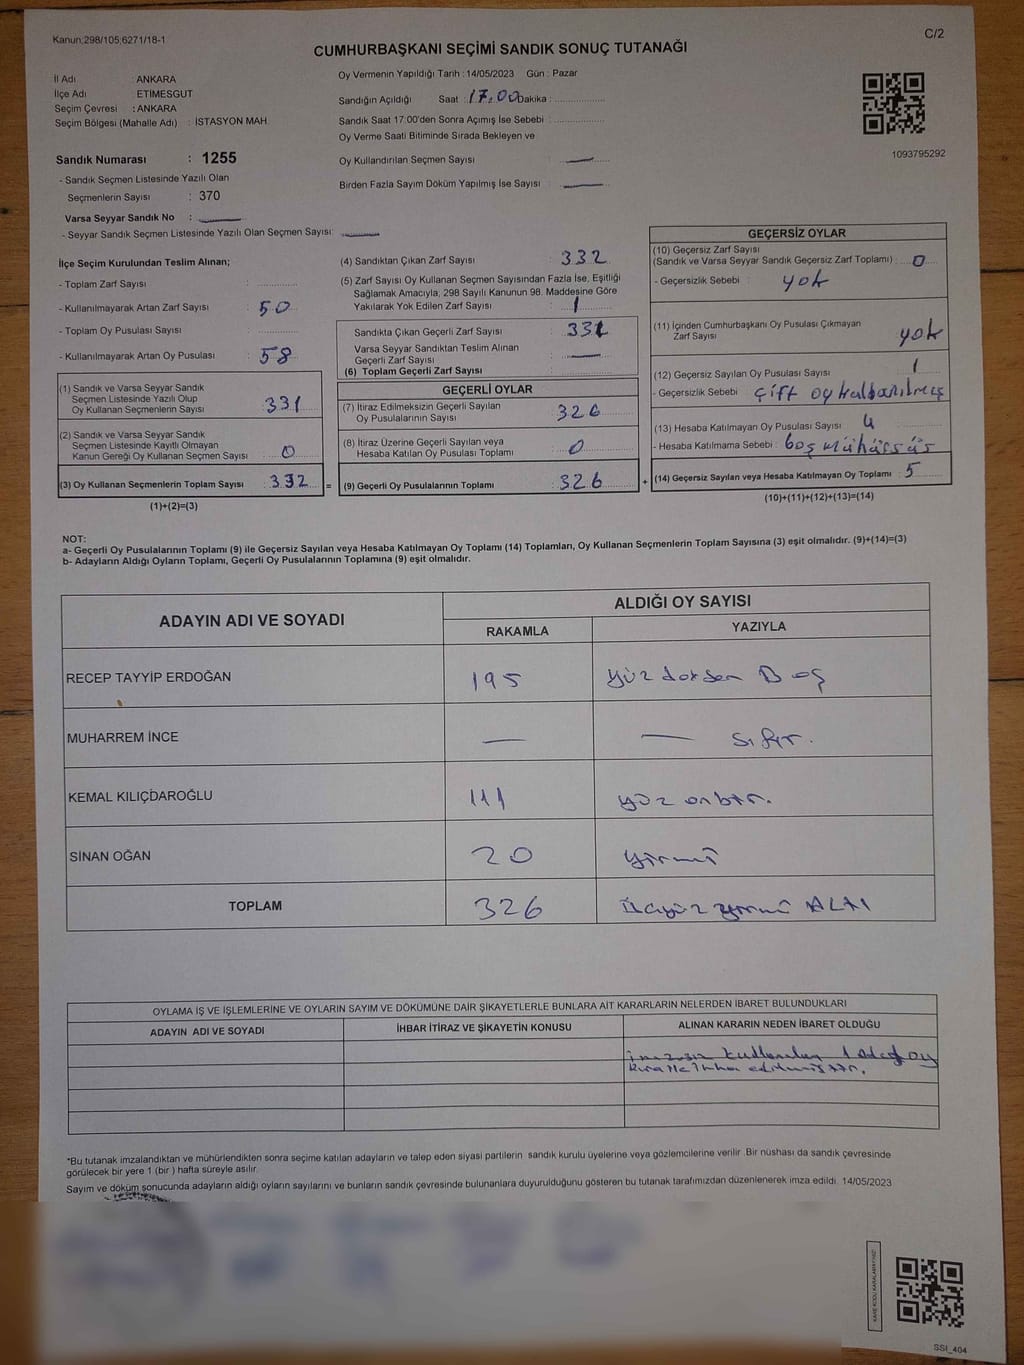 Kanun;298/105;6271/18-1
C/2
CUMHURBAŞKANI SEÇİMİ SANDIK SONUÇ TUTANAĞI
İl Adı : ANKARA
İlçe Adı : ETIMESGUT
Seçim Çevresi : ANKARA
Seçim Bölgesi (Mahalle Adı) : İSTASYON MAH.
Oy Vermenin Yapıldığı Tarih : 14/05/2023 Gün : Pazar
Sandığın Açıldığı Saat : 17.00 Dakika :
Sandık Saat 17:00'den Sonra Açımış İse Sebebi :
Oy Verme Saati Bitiminde Sırada Bekleyen ve
Oy Kullandırılan Seçmen Sayısı : —
Birden Fazla Sayım Döküm Yapılmış İse Sayısı : —
1093795292
Sandık Numarası : 1255
- Sandık Seçmen Listesinde Yazılı Olan
Seçmenlerin Sayısı : 370
Varsa Seyyar Sandık No : —
- Seyyar Sandık Seçmen Listesinde Yazılı Olan Seçmen Sayısı: —
İlçe Seçim Kurulundan Teslim Alınan;
- Toplam Zarf Sayısı :
- Kullanılmayarak Artan Zarf Sayısı : 50
- Toplam Oy Pusulası Sayısı :
- Kullanılmayarak Artan Oy Pusulası : 58
(1) Sandık ve Varsa Seyyar Sandık
Seçmen Listesinde Yazılı Olup
Oy Kullanan Seçmenlerin Sayısı : 331
(2) Sandık ve Varsa Seyyar Sandık
Seçmen Listesinde Kayıtlı Olmayan
Kanun Gereği Oy Kullanan Seçmen Sayısı : 0
(3) Oy Kullanan Seçmenlerin Toplam Sayısı : 332 =
(1)+(2)=(3)
(4) Sandıktan Çıkan Zarf Sayısı : 332
(5) Zarf Sayısı Oy Kullanan Seçmen Sayısından Fazla İse, Eşitliği
Sağlamak Amacıyla, 298 Sayılı Kanunun 98. Maddesine Göre
Yakılarak Yok Edilen Zarf Sayısı : 1
Sandıkta Çıkan Geçerli Zarf Sayısı : 331
Varsa Seyyar Sandıktan Teslim Alınan
Geçerli Zarf Sayısı : —
(6) Toplam Geçerli Zarf Sayısı :
GEÇERLİ OYLAR
(7) İtiraz Edilmeksizin Geçerli Sayılan
Oy Pusulasının Sayısı : 326
(8) İtiraz Üzerine Geçerli Sayılan veya
Hesaba Katılan Oy Pusulası Toplamı : 0
(9) Geçerli Oy Pusulalarının Toplamı : 326 +
GEÇERSİZ OYLAR
(10) Geçersiz Zarf Sayısı
(Sandık ve Varsa Seyyar Sandık Geçersiz Zarf Toplamı) : 0
- Geçersizlik Sebebi : yok
(11) İçinden Cumhurbaşkanı Oy Pusulası Çıkmayan
Zarf Sayısı : yok
(12) Geçersiz Sayılan Oy Pusulası Sayısı : 1
- Geçersizlik Sebebi : çift oy kullanılmış
(13) Hesaba Katılmayan Oy Pusulası Sayısı : 4
- Hesaba Katılmama Sebebi : boş
(14) Geçersiz Sayılan veya Hesaba Katılmayan Oy Toplamı : 5
(10)+(11)+(12)+(13)=(14)
NOT:
a- Geçerli Oy Pusulalarının Toplamı (9) ile Geçersiz Sayılan veya Hesaba Katılmayan Oy Toplamı (14) Toplamları, Oy Kullanan Seçmenlerin Toplam Sayısına (3) eşit olmalıdır. (9)+(14)=(3)
b- Adayların Aldığı Oyların Toplamı, Geçerli Oy Pusulalarının Toplamına (9) eşit olmalıdır.
ADAYIN ADI VE SOYADI
ALDIĞI OY SAYISI
RAKAMLA YAZIYLA
RECEP TAYYİP ERDOĞAN 195 yüz doksan Beş
MUHARREM İNCE — — sıfır.
KEMAL KILIÇDAROĞLU 111 yüz onbir.
SİNAN OĞAN 20 yirmi
TOPLAM 326 üçyüz yirmi ALTI
OYLAMA İŞ VE İŞLEMLERİNE VE OYLARIN SAYIM VE DÖKÜMÜNE DAİR ŞİKAYETLERLE BUNLARA AİT KARARLARIN NELERDEN İBARET BULUNDUKLARI
ADAYIN ADI VE SOYADI İHBAR İTİRAZ VE ŞİKAYETİN KONUSU ALINAN KARARIN NEDEN İBARET OLDUĞU
imzasız kullanılan 1 adet oy
imha edilmiştir.
*Bu tutanak imzalandıktan ve mühürlendikten sonra seçime katılan adayların ve talep eden siyasi partilerin sandık kurulu üyelerine veya gözlemcilerine verilir. Bir nüshası da sandık çevresinde
görülecek bir yere 1 (bir ) hafta süreyle asılır.
Sayım ve döküm sonucunda adayların aldığı oyların sayılarını ve bunların sandık çevresinde bulunanlara duyurulduğunu gösteren bu tutanak tarafımızdan düzenlenerek imza edildi. 14/05/2023
KARE KODU KARALAMAYINIZ!
SSI_404